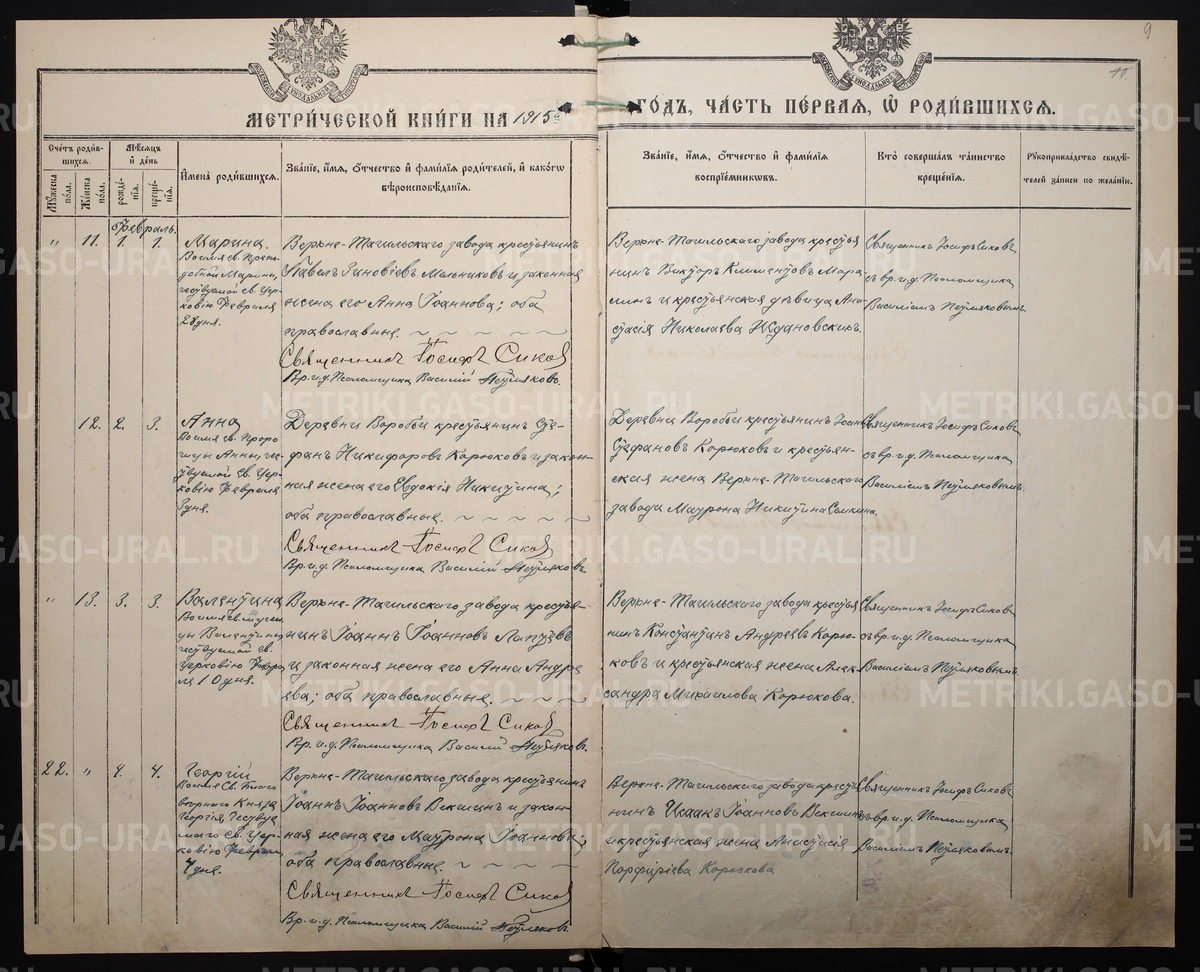 9
10.
МЕТРИ́ЧЕСКОЙ КНИ́ГИ НА 1915й
ГО́ДЪ, ЧА́СТЬ ПЕ́РВАЯ, Ѡ РОДИ́ВШИХСЯ.
Сче́тъ роди́вшихся.
Му́жеска по́ла.
Же́нска по́ла.
Мѣ́сяцъ и де́нь
рожде́нїя.
креще́нїя.
И҆мена̀ роди́вшихся.
Зва́нїе, и҆́мя, ѻ҆́тчество и҆ фами́лїя роди́телей, и҆ како́гѡ
вѣроисповѣ́данїя.
Зва́нїе, и҆́мя, ѻ҆́тчество и҆ фами́лїя
воспрїе́мниковъ.
Кто̀ соверша́лъ та́инство
креще́нїя.
Рꙋкоприкла́дство свидѣ́-
телей за́писи по жела́нїю.
Февраль.
" 11. 1. 1.
Марина.
Во имя св. Препо-
добной Марины,
чествуемой св. Цер-
ковію Февраля
28 дня.
Верхне-Тагильскаго завода крестьянинъ
Павелъ Зиновіевъ Мельниковъ и законная
жена его Анна Іоаннова; оба
православные.
Священникъ Іосифъ Сиков
Вр. и. д. Псаломщика Василій
Верхне-Тагильскаго завода кресть-
нинъ Викторъ Климентовъ Мара-
линъ и крестьянская дѣвица Ана-
стасія Николаева Ждановскихъ.
Священникъ Іосифъ Сиковъ
съ вр. и. д. Псаломщика
Василіемъ
12. 2. 3.
Анна
Во имя св. Проро-
чицы Анны, чес-
твуемой св. Цер-
ковію Февраля
3 дня.
Деревни Воробьи крестьянинъ Сте-
фанъ Никифоровъ Корюковъ и закон-
ная жена его Евдокія Никитина;
оба православные.
Священникъ Іосифъ Сиков
Вр. и. д. Псаломщика Василій
Деревни Воробьи крестьянинъ Іоаннъ
Стефановъ Корюковъ и крестьян-
ская жена Верхне-Тагильскаго
завода Маврона Никитина
Священникъ Іосифъ Сиковъ
съ вр. и. д. Псаломщика
Василіемъ
" 13. 3. 3.
Валентина
Во имя св. мучени-
цы Валентины,
чествуемой св.
Церковію Февра-
ля 10 дня.
Верхне-Тагильскаго завода крестья-
нинъ Іоаннъ Іоанновъ Лапузовъ
и законная жена его Анна Андре-
ева; оба православные.
Священникъ Іосифъ Сиков
Вр. и. д. Псаломщика Василій
Верхне-Тагильскаго завода кресть-
нинъ Константинъ Андреевъ Корю-
ковъ и крестьянская жена Алек-
сандра Михаилова Корюкова.
Священникъ Іосифъ Сиковъ
съ вр. и. д. Псаломщика
Василіемъ
22. " 4. 4.
Георгій
Во имя Св. Благо-
вѣрнаго Князя
Георгія, чествуе-
маго Св. Цер-
ковію Февраля
4 дня.
Верхне-Тагильскаго завода крестьянинъ
Іоаннъ Іоанновъ Векшинъ и закон-
ная жена его Маврона Іоаннова;
оба православные.
Священникъ Іосифъ Сиков
Вр. и. д. Псаломщика Василій
Верхне-Тагильскаго завода кресть-
нинъ Исаакъ Іоанновъ Векшинъ
и крестьянская жена Анастасія
Порфиріева Корюкова
Священникъ Іосифъ Сиковъ
съ вр. и. д. Псаломщика
Василіемъ
METRIKI.GASO-URAL.RU